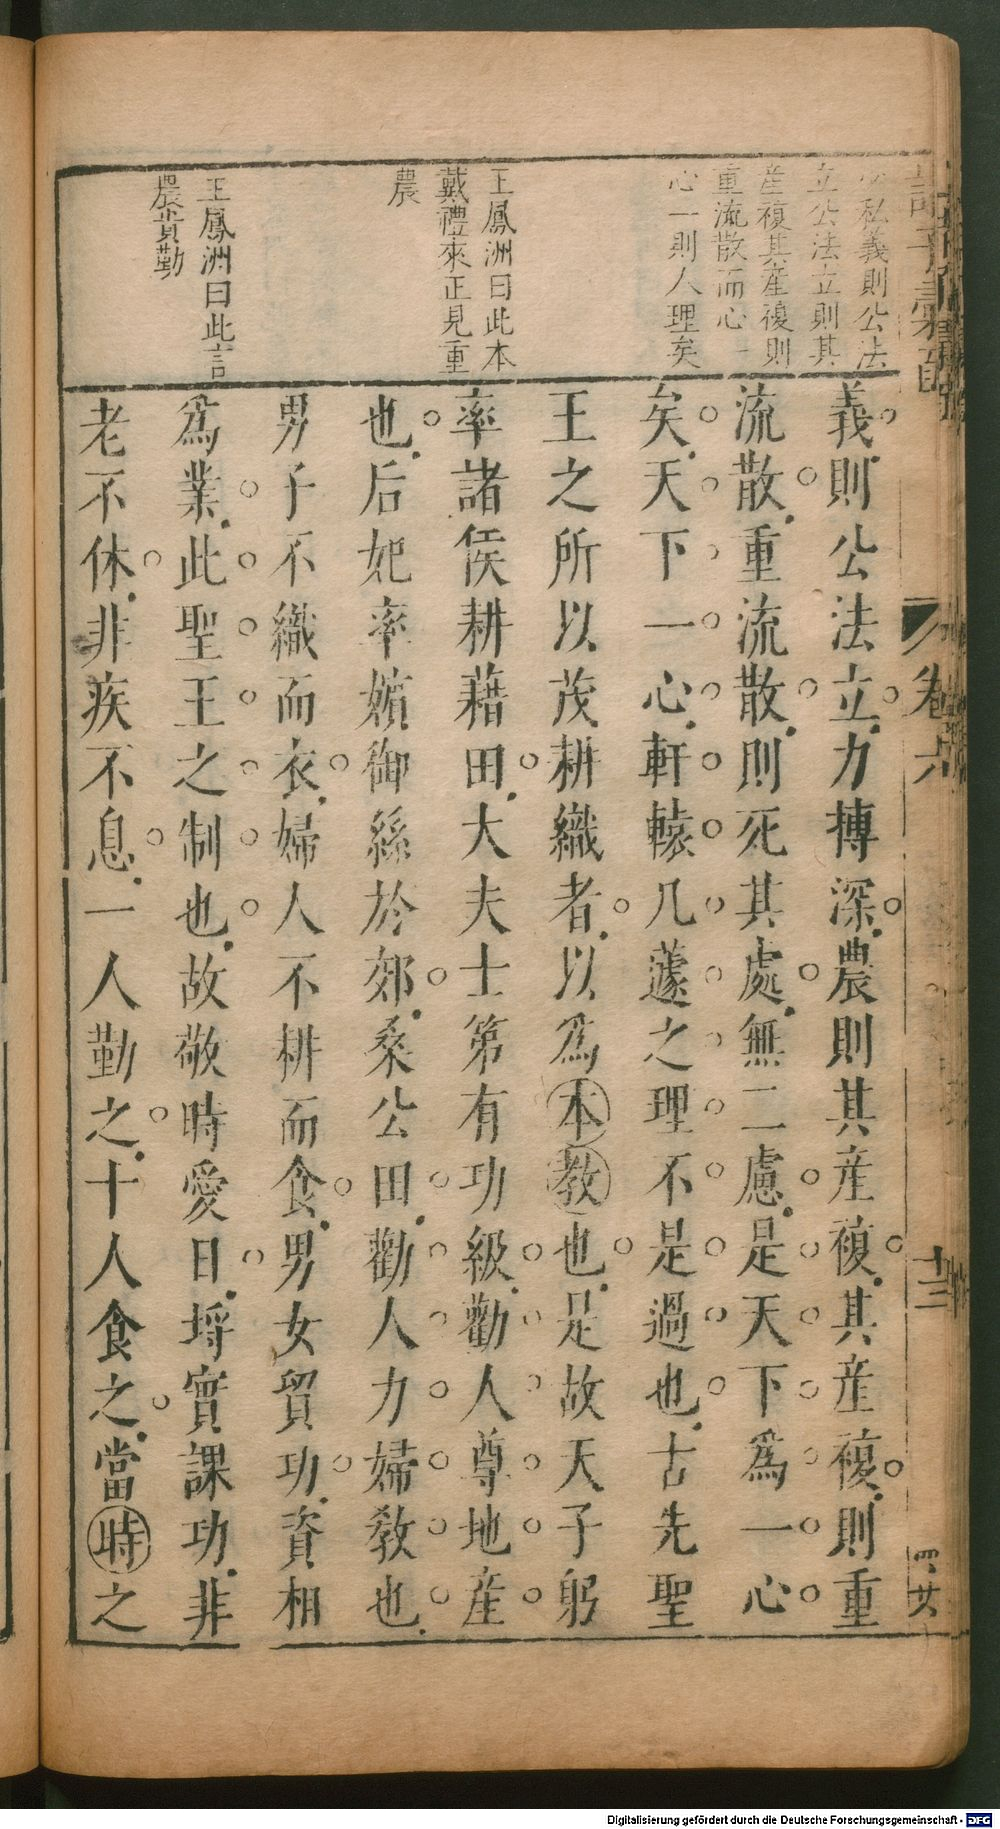 私義則公法
立公法立則其
産複其產複則
重流散而心一
心一則人理矣
王鳳洲曰此本
戴禮來正見重
農
王鳳洲曰此言
農貴勤
義則公法立力摶深農則其産複其産複則重
流散重流散則死其處無二慮是天下爲一心
矣天下一心軒轅几蘧之理不是過也古先聖
王之所以茂耕織者以爲本教也是故天子躬
率諸侯耕藉田大夫士第有功級勸人尊地産
也后妃率嬪御絲於郊桑公田勸人力婦教也
男子不織而衣婦人不耕而食男女貿功資相
爲業此聖王之制也故敬時愛日埒實課功非
老不休非疾不息一人勤之十人食之當時之
卷六
十三
Digitalisierung gefördert durch die Deutsche Forschungsgemeinschaft - DFG